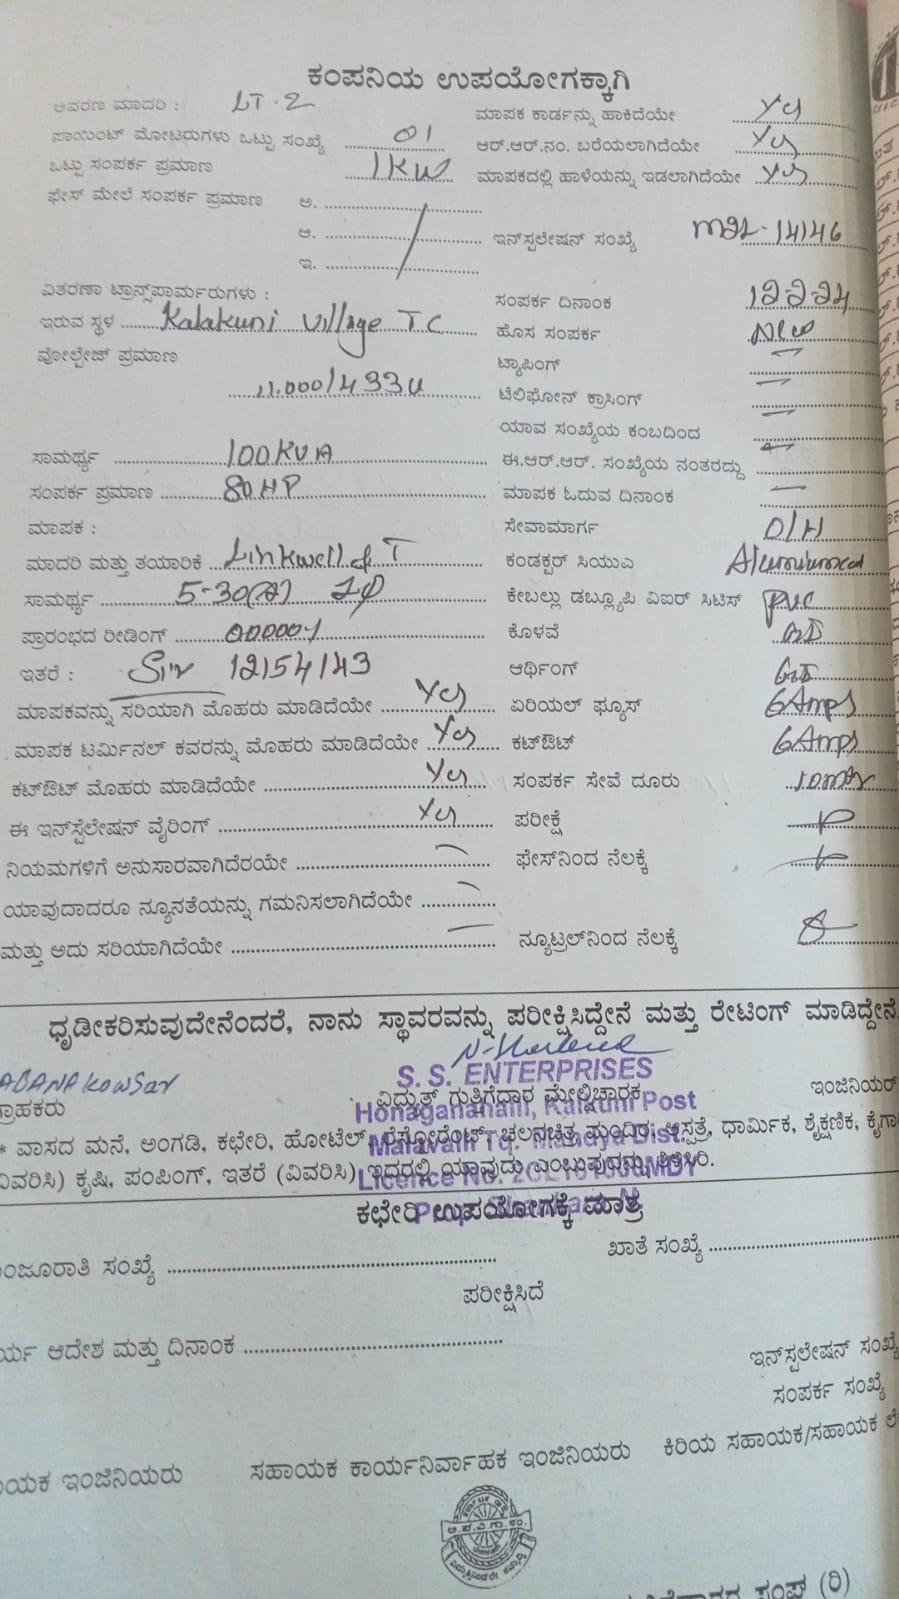 ಕಂಪನಿಯ ಉಪಯೋಗಕ್ಕಾಗಿ
ಆವರಣ ಮಾದರಿ : LT-2
ಮಾಪಕ ಕಾರ್ಡನ್ನು ಹಾಕಿದೆಯೇ Yes
ಪಾಯಿಂಟ್ ಮೋಟರುಗಳು ಒಟ್ಟು ಸಂಖ್ಯೆ 01
ಆರ್.ಆರ್.ನಂ. ಬರೆಯಲಾಗಿದೆಯೇ Yes
ಒಟ್ಟು ಸಂಪರ್ಕ ಪ್ರಮಾಣ 1KW
ಮಾಪಕದಲ್ಲಿ ಹಾಳೆಯನ್ನು ಇಡಲಾಗಿದೆಯೇ Yes
ಫೇಸ್ ಮೇಲೆ ಸಂಪರ್ಕ ಪ್ರಮಾಣ ಅ.
ಆ.
ಇನ್‌ಸ್ಟಲೇಷನ್ ಸಂಖ್ಯೆ 14146
ಇ.
ವಿತರಣಾ ಟ್ರಾನ್ಸ್‌ಪಾರ್ಮರುಗಳು :
ಸಂಪರ್ಕ ದಿನಾಂಕ 12-2-24
ಇರುವ ಸ್ಥಳ Kalakuni Village TC
ಹೊಸ ಸಂಪರ್ಕ New
ವೋಲ್ಟೇಜ್ ಪ್ರಮಾಣ
ಟ್ಯಾಪಿಂಗ್
11.000/433V
ಟೆಲಿಫೋನ್ ಕ್ರಾಸಿಂಗ್
ಯಾವ ಸಂಖ್ಯೆಯ ಕಂಬದಿಂದ
ಸಾಮರ್ಥ್ಯ 100KVA
ಈ.ಆರ್.ಆರ್. ಸಂಖ್ಯೆಯ ನಂತರದ್ದು
ಸಂಪರ್ಕ ಪ್ರಮಾಣ 80HP
ಮಾಪಕ ಓದುವ ದಿನಾಂಕ
ಮಾಪಕ :
ಸೇವಾಮಾರ್ಗ O/H
ಮಾದರಿ ಮತ್ತು ತಯಾರಿಕೆ Linkwell & T
ಕಂಡಕ್ಟರ್ ಸಿಯುಎ
ಸಾಮರ್ಥ್ಯ 5-30(A) 1φ
ಕೇಬಲ್ಲು ಡಬ್ಲ್ಯೂಪಿ ವಿಐರ್ ಸಿಟಿಸ್ PVC
ಪ್ರಾರಂಭದ ರೀಡಿಂಗ್
ಕೊಳವೆ GI
ಇತರೆ : 12154143
ಆರ್ಥಿಂಗ್ GI
ಮಾಪಕವನ್ನು ಸರಿಯಾಗಿ ಮೊಹರು ಮಾಡಿದೆಯೇ Yes
ಏರಿಯಲ್ ಫ್ಯೂಸ್ 6Amps
ಮಾಪಕ ಟರ್ಮಿನಲ್ ಕವರನ್ನು ಮೊಹರು ಮಾಡಿದೆಯೇ Yes
ಕಟ್‌ಔಟ್ 6Amps
ಕಟ್‌ಔಟ್ ಮೊಹರು ಮಾಡಿದೆಯೇ Yes
ಸಂಪರ್ಕ ಸೇವೆ ದೂರು
ಈ ಇನ್‌ಸ್ಟೆಲೇಷನ್ ವೈರಿಂಗ್ Yes
ಪರೀಕ್ಷೆ
ನಿಯಮಗಳಿಗೆ ಅನುಸಾರವಾಗಿದೆರಯೇ
ಫೇಸ್‌ನಿಂದ ನೆಲಕ್ಕೆ
ಯಾವುದಾದರೂ ನ್ಯೂನತೆಯನ್ನು ಗಮನಿಸಲಾಗಿದೆಯೇ
ಮತ್ತು ಅದು ಸರಿಯಾಗಿದೆಯೇ
ನ್ಯೂಟ್ರಲ್‌ನಿಂದ ನೆಲಕ್ಕೆ
ಧೃಡೀಕರಿಸುವುದೇನೆಂದರೆ, ನಾನು ಸ್ಥಾವರವನ್ನು ಪರೀಕ್ಷಿಸಿದ್ದೇನೆ ಮತ್ತು ರೇಟಿಂಗ್ ಮಾಡಿದ್ದೇನೆ
S. S. ENTERPRISES
ವಿದ್ಯುತ್ ಗುತ್ತಿಗೆದಾರ ಮೇಲ್ವಿಚಾರಕ
ಇಂಜಿನಿಯರ್
ಗ್ರಾಹಕರು
* ವಾಸದ ಮನೆ, ಅಂಗಡಿ, ಕಛೇರಿ, ಹೋಟೆಲ್, ರೆಸ್ಟೋರೆಂಟ್, ಚಲನಚಿತ್ರ ಮಂದಿರ, ಆಸ್ಪತ್ರೆ, ಧಾರ್ಮಿಕ, ಶೈಕ್ಷಣಿಕ,
ವಿವರಿಸಿ) ಕೃಷಿ, ಪಂಪಿಂಗ್, ಇತರೆ (ವಿವರಿಸಿ) ಇದರಲ್ಲಿ ಯಾವುದು ಎಂಬುವುದನ್ನು ತಿಳಿಸಿರಿ.
ಕಛೇರಿ ಉಪಯೋಗಕ್ಕೆ ಮಾತ್ರ
ಸಂಖ್ಯೆ
ಖಾತೆ ಸಂಖ್ಯೆ
ಪರೀಕ್ಷಿಸಿದೆ
ಆದೇಶ ಮತ್ತು ದಿನಾಂಕ
ಇನ್‌ಸ್ಟಲೇಷನ್ ಸಂಖ್ಯೆ
ಸಂಪರ್ಕ ಸಂಖ್ಯೆ
ಇಂಜಿನಿಯರು
ಸಹಾಯಕ ಕಾರ್ಯನಿರ್ವಾಹಕ ಇಂಜಿನಿಯರು
ಕಿರಿಯ ಸಹಾಯಕ/ಸಹಾಯಕ
ಸಂಘ (ರಿ)